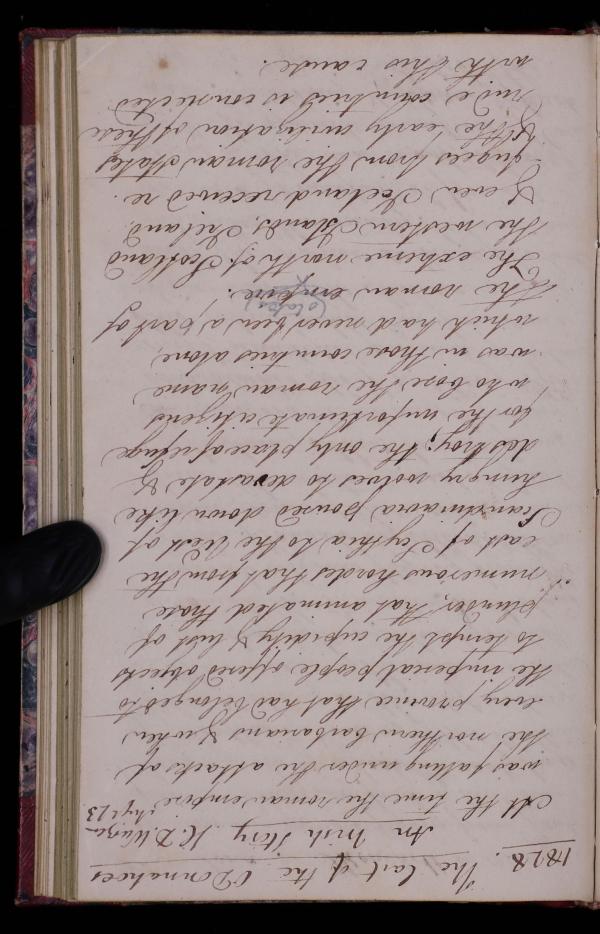 1828. The last of the O'Donnahoes
An Irish Story K. D. Wiman
Age 23
At the time the roman empire
was falling under the attacks of
the northern barbarians & when
every province that had belonged to
the imperial people offered objects
to tempt the cupidity & lust of
plunder, that animated those
numerous hordes that from the
east of Scythia to the West of
Scandinavia poured down like
hungry wolves to devastate &
destroy; the only place of refuge
for the unfortunate citizens
who bore the roman name
was in those countries alone,
which had never been a part of
the roman empire.
The extreme north of Scotland
the western Islands, Ireland,
& even Iceland received re-
fugees from the roman States
& the early civilization of these
rude countries is connected
with this cause.